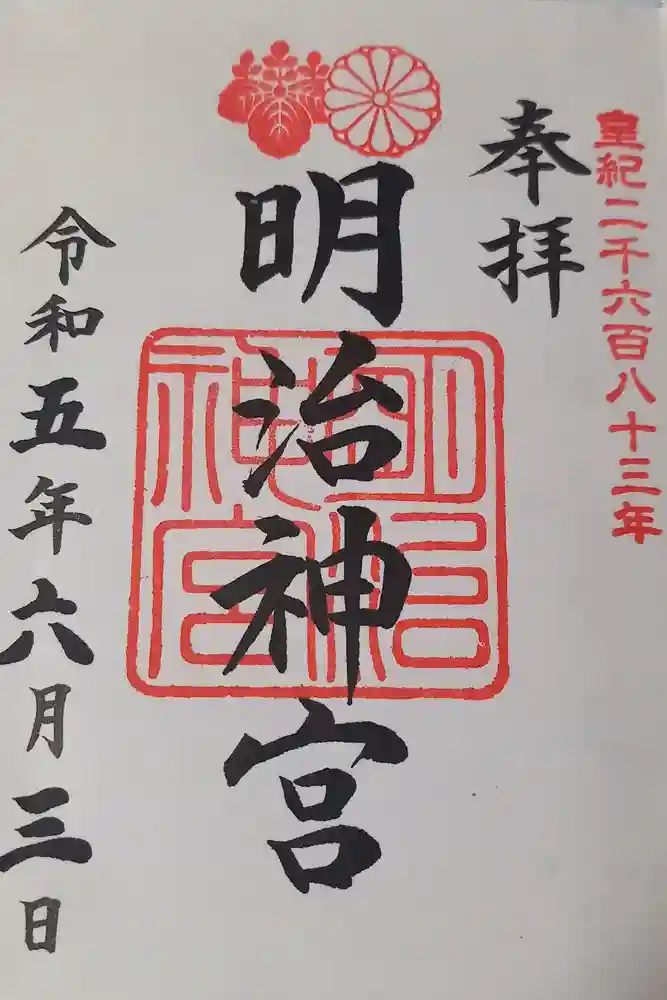 皇紀二千六百八十三年
奉拝
明治神宮
明治
神宮
令和五年六月三日